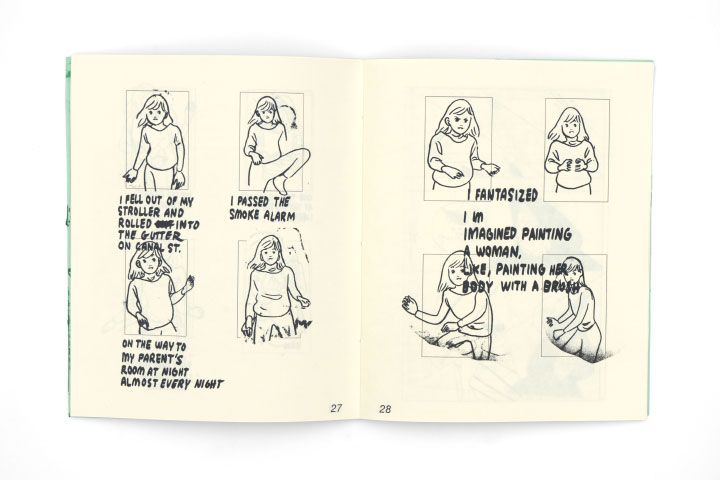 I FELL OUT OF MY
STROLLER AND
ROLLED INTO
THE GUTTER
ON CANAL ST.
I PASSED THE
SMOKE ALARM
ON THE WAY TO
MY PARENT'S
ROOM AT NIGHT
ALMOST EVERY NIGHT
27
I FANTASIZED
I
IMAGINED PAINTING
A WOMAN,
LIKE, PAINTING HER
BODY WITH A BRUSH
28